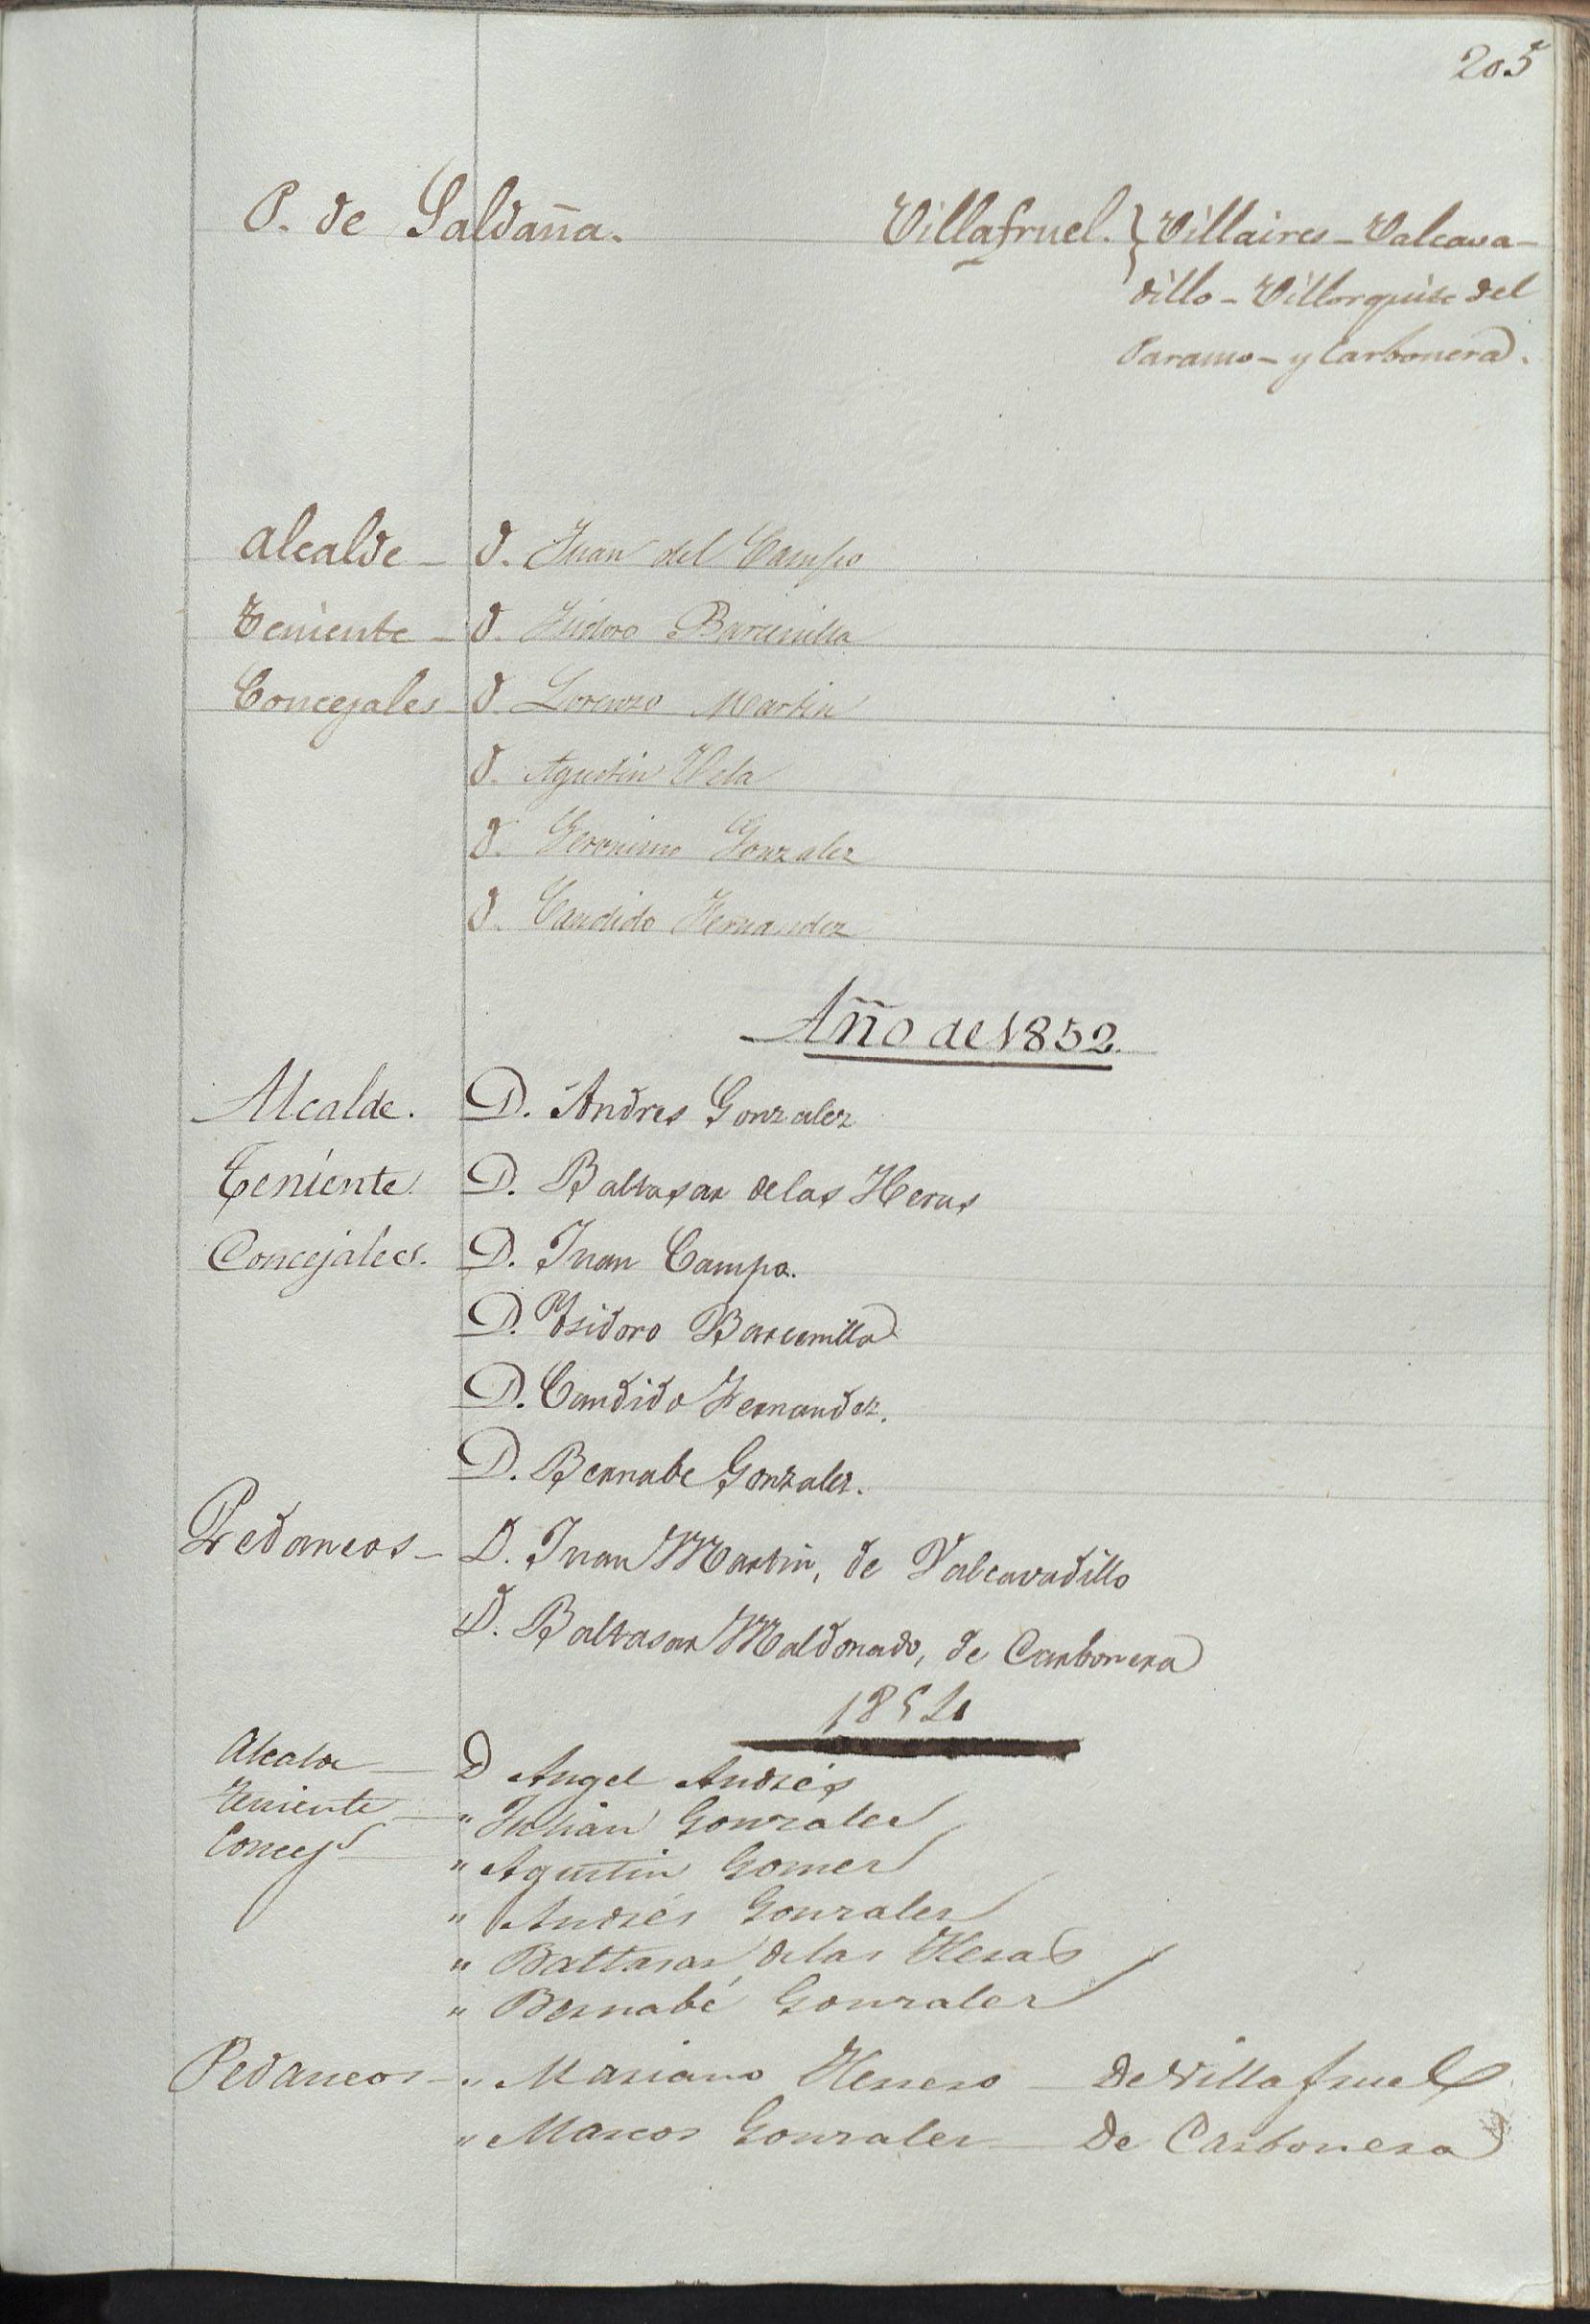 205
P. de Saldaña. Villafruel. } Villaires - Valcava-
dillo - Villorquite del
Paramo - y Carbonera.
Alcalde - D. Juan del Campo
Teniente - D. Isidoro Barcenilla
Concejales D. Lorenzo Martin
D. Agustin Vela
D. Geronimo Gonzalez
D. Candido Hernandez
Año de 1852.
Alcalde. D. Andres Gonzalez
Teniente. D. Baltasar de las Heras
Concejales. D. Juan Campo.
D. Ysidoro Barcenilla
D. Candido Fernandez.
D. Bernabe Gonzalez.
Pedaneos - D. Juan Martin, de Valcavadillo
D. Baltasar Maldonado, de Carbonera
1854
Alcalde - D Angel Andrés
Teniente - " Julian Gonzalez
Concejs - " Agustin Gomez
" Andrés Gonzalez
" Baltasar de las Heras
" Bernabé Gonzalez
Pedaneos - " Mariano Herrero - de Villafruel
" Marcos Gonzalez - de Carbonera